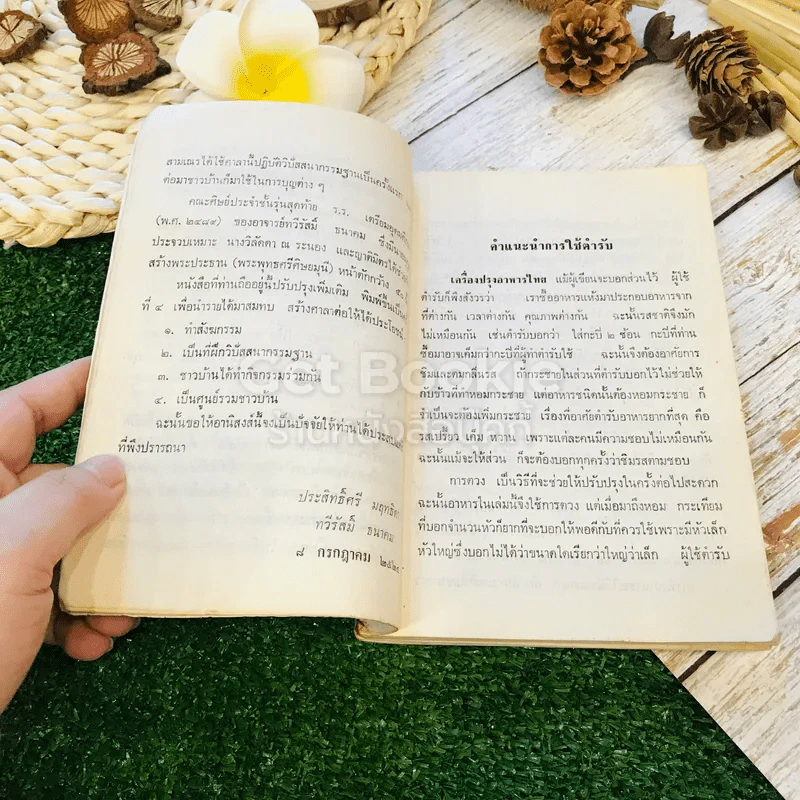 สามเณรได้ใช้ศาลานี้ปฏิบัติวิปัสสนากรรมฐานเป็นครั้งแรก
ต่อมาชาวบ้านก็มาใช้ในการบุญต่าง ๆ
คณะศิษย์ประจำชั้นรุ่นสุดท้าย ร.ร. เตรียมอุดม
(พ.ศ. ๒๔๘๙) ของอาจารย์ทวีรัสมิ์ ธนาคม ซึ่งมีนาย
ประจวบเหมาะ นางวิลัดดา ณ ระนอง และญาติมิตรได้ช่วย
สร้างพระประธาน (พระพุทธศรีศิษยมุนี) หน้าตักกว้าง
หนังสือที่ท่านถืออยู่นี้ปรับปรุงเพิ่มเติม พิมพ์ขึ้นเป็น
ที่ ๔ เพื่อนำรายได้มาสมทบ สร้างศาลาต่อให้ได้ประโยชน์
๑. ทำสังฆกรรม
๒. เป็นที่ฝึกวิปัสสนากรรมฐาน
๓. ชาวบ้านได้ทำกิจกรรมร่วมกัน
๔. เป็นศูนย์รวมชาวบ้าน
ฉะนั้นขอให้อานิสงส์นี้จงเป็นปัจจัยให้ท่านได้ประสบ
ที่พึงปรารถนา
ประสิทธิ์ศรี
ทวีรัสมิ์ ธนาคม
๘ กรกฎาคม
คำแนะนำการใช้ตำรับ
เครื่องปรุงอาหารไทย แม้ผู้เขียนจะบอกส่วนไว้ ผู้ใช้
ตำรับก็พึงสังวรว่า เราซื้ออาหารแห้งมาประกอบอาหารจาก
ที่ต่างกัน เวลาต่างกัน คุณภาพต่างกัน ฉะนั้นรสชาติจึงมัก
ไม่เหมือนกัน เช่นตำรับบอกว่า ใส่กะปิ ๒ ช้อน กะปิที่ท่าน
ซื้อมาอาจเค็มกว่ากะปิที่ผู้ทำตำรับใช้ ฉะนั้นจึงต้องอาศัยการ
ชิมและดมกลิ่นรส ถ้ากระชายในส่วนที่ตำรับบอกไว้ไม่ช่วยให้
กับข้าวที่ทำหอมกระชาย แต่อาหารชนิดนั้นต้องหอมกระชาย ก็
จำเป็นจะต้องเพิ่มกระชาย เรื่องที่อาศัยตำรับอาหารยากที่สุด คือ
รสเปรี้ยว เค็ม หวาน เพราะแต่ละคนมีความชอบไม่เหมือนกัน
ฉะนั้นแม้จะให้ส่วน ก็จะต้องบอกทุกครั้งว่าชิมรสตามชอบ
การตวง เป็นวิธีที่จะช่วยให้ปรับปรุงในครั้งต่อไปสะดวก
ฉะนั้นอาหารในเล่มนี้จึงใช้การตวง แต่เมื่อมาถึงหอม กระเทียม
ที่บอกจำนวนหัวก็ยากที่จะบอกให้พอดีกับที่ควรใช้เพราะมีหัวเล็ก
หัวใหญ่ซึ่งบอกไม่ได้ว่าขนาดใดเรียกว่าใหญ่ว่าเล็ก ผู้ใช้ตำรับ
Get Bookie